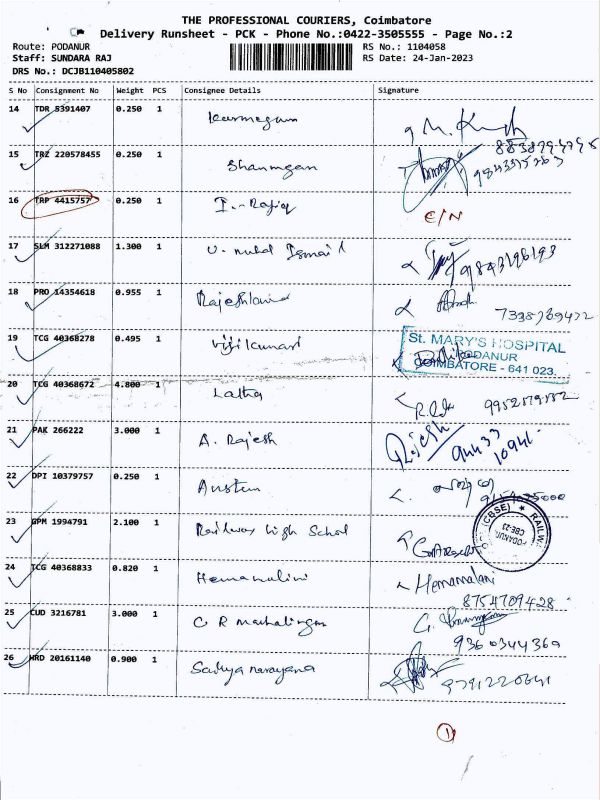 THE PROFESSIONAL COURIERS, Coimbatore
Delivery Runsheet - PCK - Phone No.:0422-3505555 - Page No.:2
Route: PODANUR RS No.: 1104058
Staff: SUNDARA RAJ RS Date: 24-Jan-2023
DRS No.: DCJB110405802
S No Consignment No Weight PCS Consignee Details Signature
14 TDR 5391407 0.250 1 Karmegam
15 TRZ 220578455 0.250 1 Shanmgan
16 TRP 4415757 0.250 1 I. Rafiq E/N
17 SLM 312271088 1.300 1 Ismail 9843196193
18 PRO 14354618 0.955 1
19 TCG 40368278 0.495 1 Vijikumari
St. MARY'S HOSPITAL
PODANUR
COIMBATORE - 641 023.
20 TCG 40368672 4.800 1 Latha
21 PAK 266222 3.000 1 A. Rajesh Rajesh 94433
10941
22 DPI 10379757 0.250 1 Austin
23 GPM 1994791 2.100 1 Railway High School
24 TCG 40368833 0.820 1 Hemamalini Hemamalani
8754709428
25 CUD 3216781 3.000 1 C R Mahalingam
9360344369
26 HRD 20161140 0.900 1 Sathya narayana
1